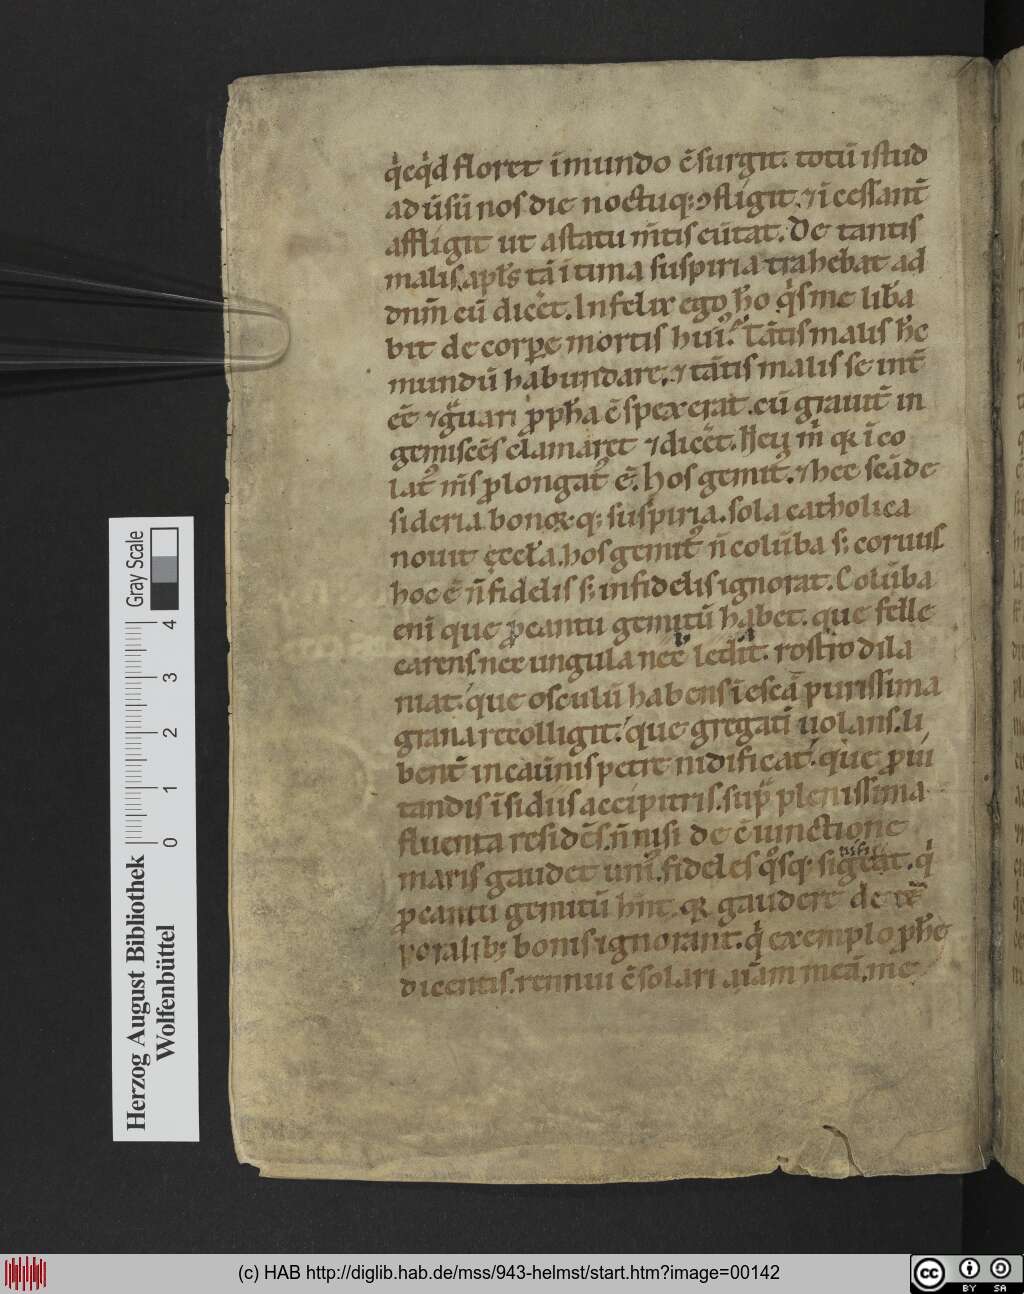 q̇eq̇d floret ı̄ mundo c̄surgit. totū istud
adūsū nos die noctuq; ↄfligit. ⁊ ı̄cessant̄
affligit ut a statu m̄tis eūtat. De tantis
malis apl's tā ītima suspiria trahebat ad
dnm̄ cū dicēt. Infelix ego hō q̇s me liba
bit de corpe mortis hui᾿. Tātis malis hͦe
mundū habundare, ⁊ tātis malis se int̄
eē ⁊ g̈uari ppha c̄spexerat. cū grauit̄ in
gemiscēs clamaret ⁊ dicēt. Heu m̄ qꝛ īco
lat᾿ m̄s plongat᾿ ē. Hos gemit᾿. ⁊ hec scāde
sideria bonoꝝ q; suspiria. sola catholica
nouit ęccła. hos gemit᾿ n̄ colūba s; coruus
hoc ē n̄ fidelis s; infidelis ignorat. Colūba
enī que pcantu gemitū habet. que felle
carens nec ungula nec ledit. rostro dila
niat. que osculū habens īescā purissima
grana recolligit. que gregatī uolans. li
bent̄ in cauīnis petre nidificat. que p ui
tandis īsidiis accipitris. sup plenissima
fluenta residēs. n̄ nisi de c̄iunctione
maris gaudet uni᾿. fideles q̊sq; sigēat. q̇
nisi
pcantu gemitū hn̄t. qꝛ gaudere de tē
poralib; bonis ignorant. q̇ exemplo phe
dicentis. rennui c̄solari aīam meā. me
Herzog August Bibliothek
Wolfenbüttel
0 1 2 3 4
Gray Scale
(c) HAB http://diglib.hab.de/mss/943-helmst/start.htm?image=00142
cc BY SA